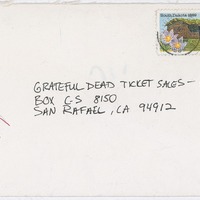 South Dakota 1889
GRATEFUL DEAD TICKET SALES—
BOX C-S 8150
SAN RAFAEL, CA 94912